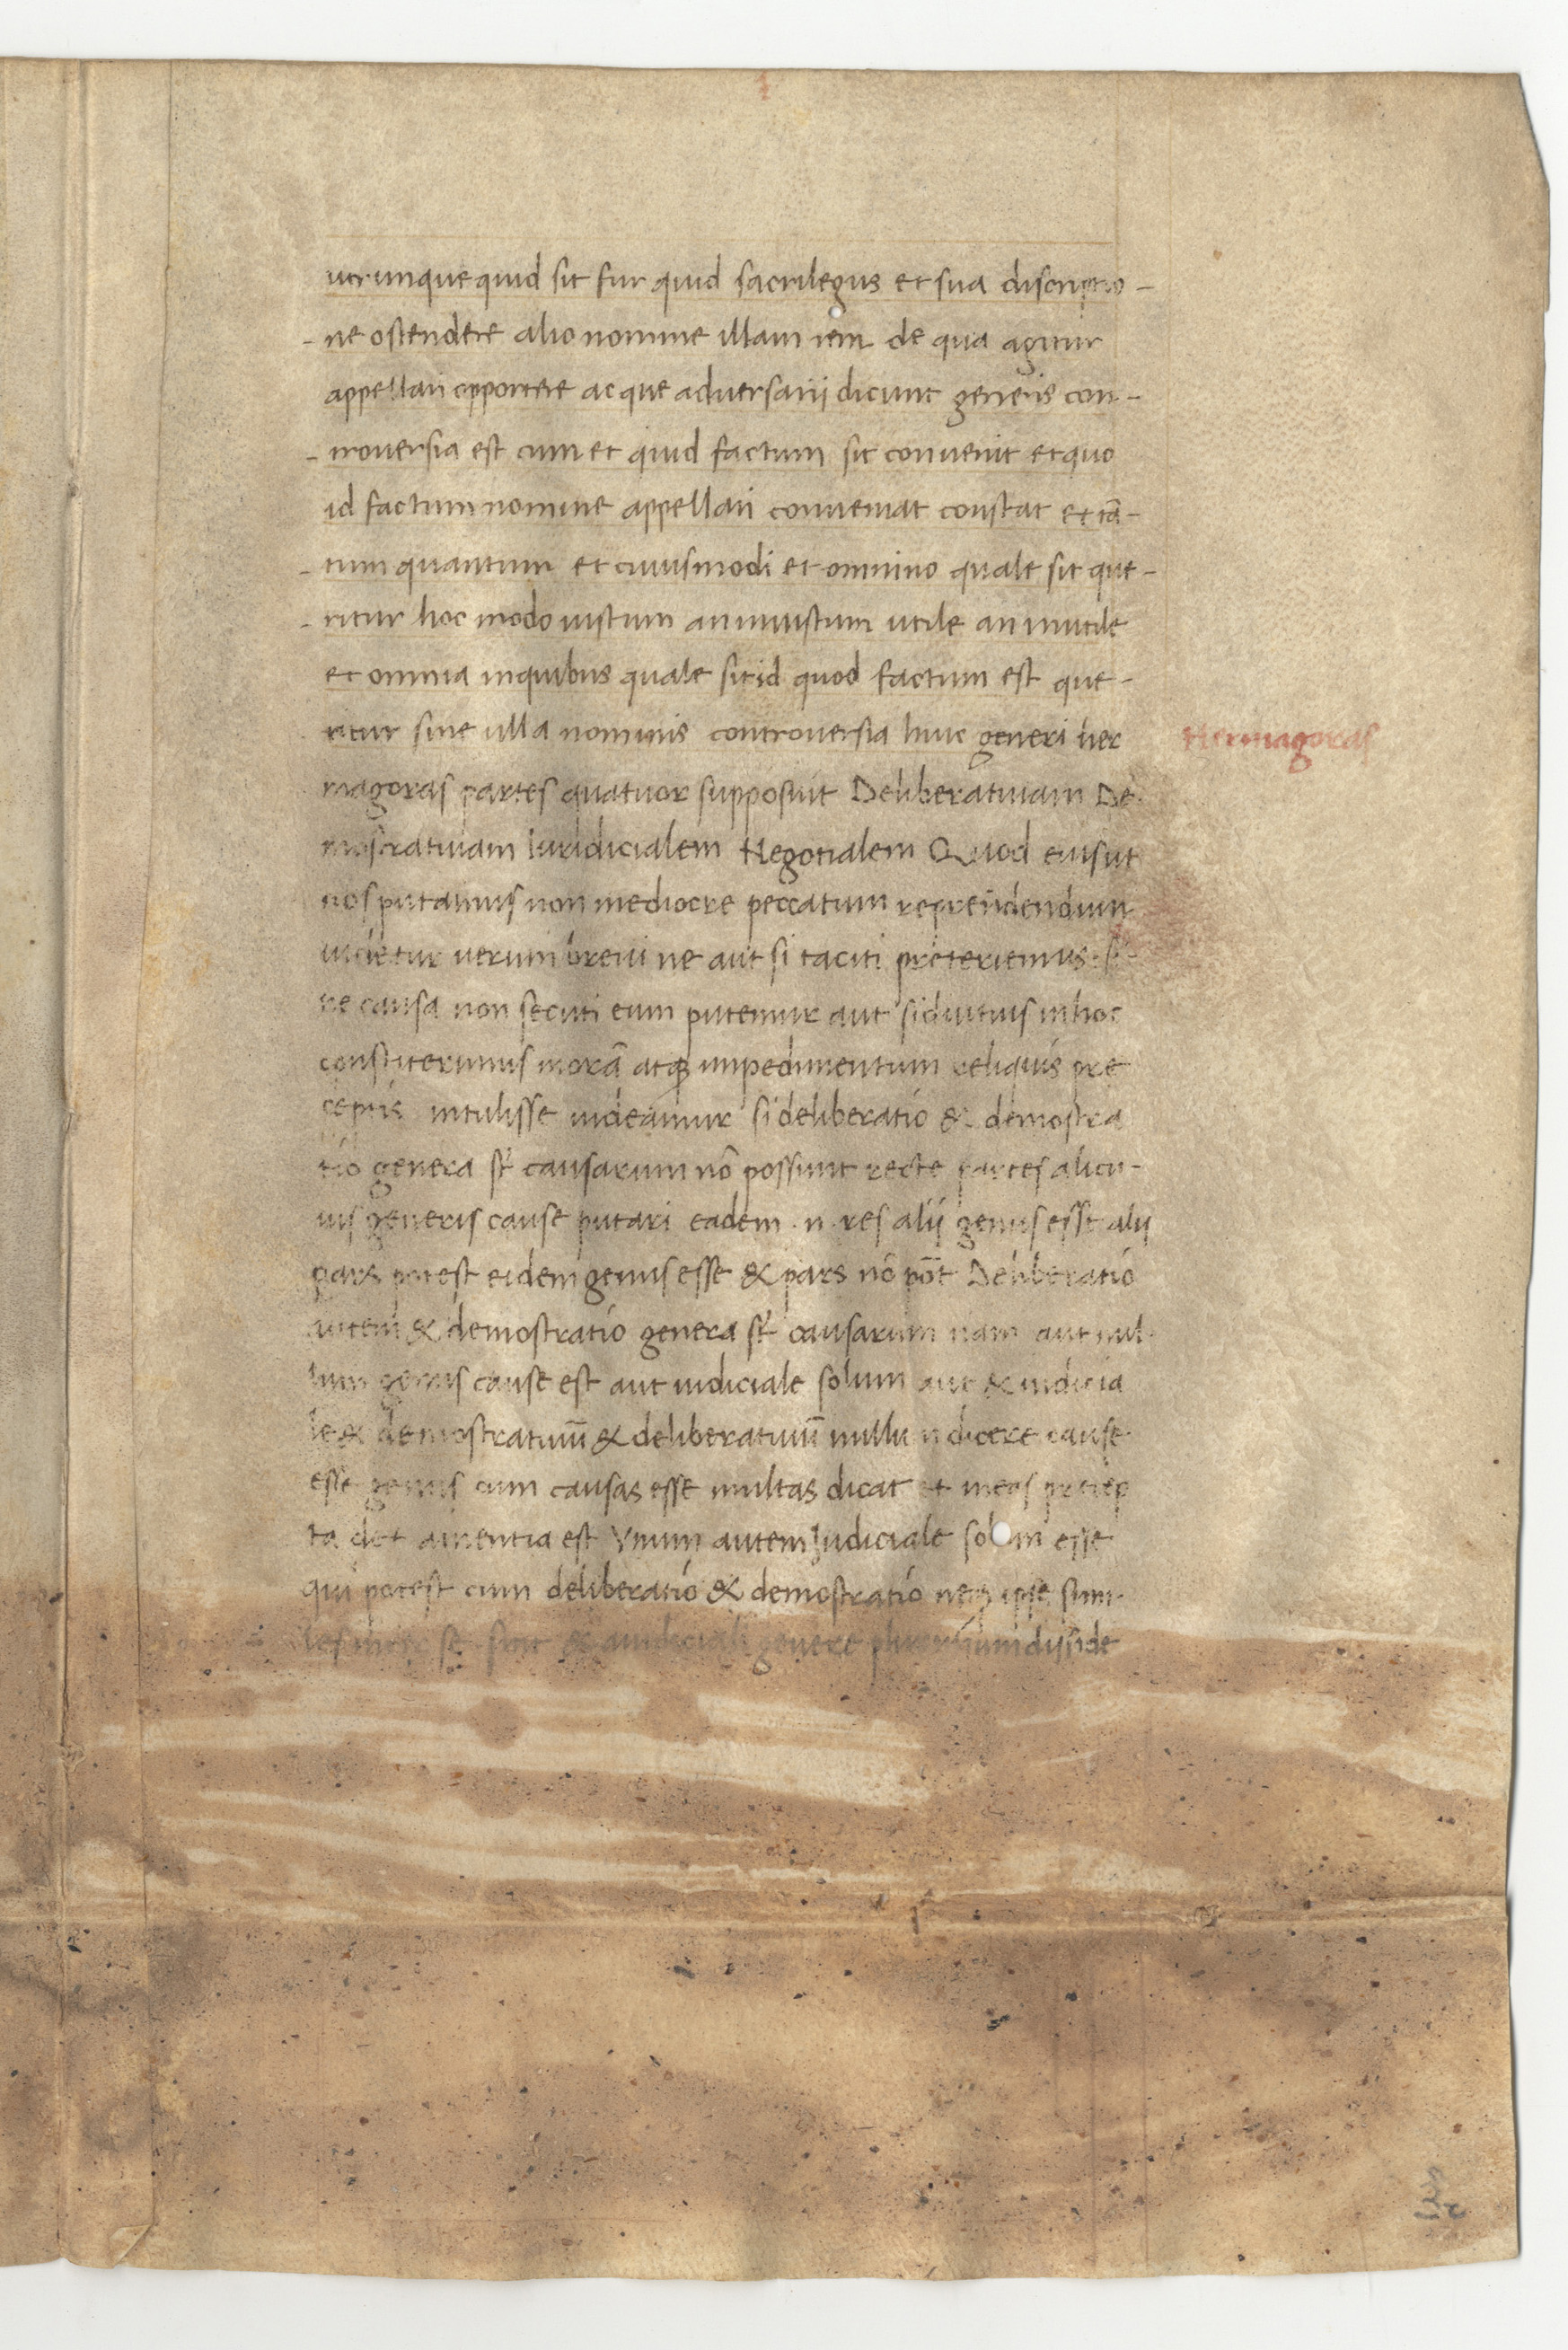 utrunque quid sit fur quid sacrilegus et sua discriptio-
-ne ostendere alio nomine illam rem de qua agitur
appellari opportere ac que adversarij dicunt generis con-
-troversia est cum et quid factum sit convenit et quo
id factum nomine appellari conveniat constat et tā-
-tum quantum et cuiusmodi et omnino quale sit que-
-ritur hoc modo iustum an iniustum utile an inutile
et omnia inquibus quale sit id quod factum est que-
ritur sine ulla nominis controversia huic generi her
Hermagoras
magoras partes quatuor supposuit Deliberativam De
mostrativam Iuridicialem Negotialem Quod eius ut
nos putamus non mediocre peccatum reprendendum
videtur verum brevi ne aut si taciti preteriemus si
ne causa non secuti eum putemur aut si diutius in hoc
constiterimus morā atq impedimentum reliquis pre
ceptis intulisse videamur si deliberatio & demostra
tio genera st causarum nō possunt recte partes alicu-
ius generis cause putari eadem .n. res alij genus esse alij
pars potest eidem genus esse & pars nō pōt Deliberatio
autem & demostratio genera st causarum nam aut nul-
lum genus cause est aut iudiciale solum aut & iudicia
le & demostrativū & deliberativū nullum dicere cause
esse genus cum causas esse multas dicat et in eas precep
ta det amentia est Vnum autem Iudiciale solum esse
qui potest cum deliberatio & demostratio neq ipse simi-
les inter se sint & a iudiciali genere plurimum disside